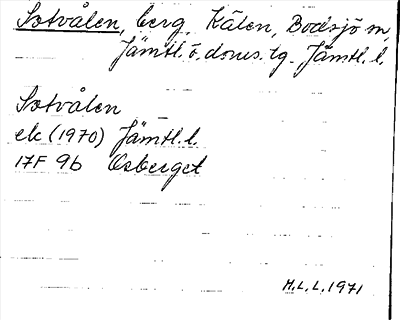 Sotvålen, berg. Kälen, Bodsjö sn,
Jämtl. ö. doms. tg. Jämtl. l.
Sotvålen
ek (1970) Jämtl. l.
17F 9b Osberget
H.L.L. 1971